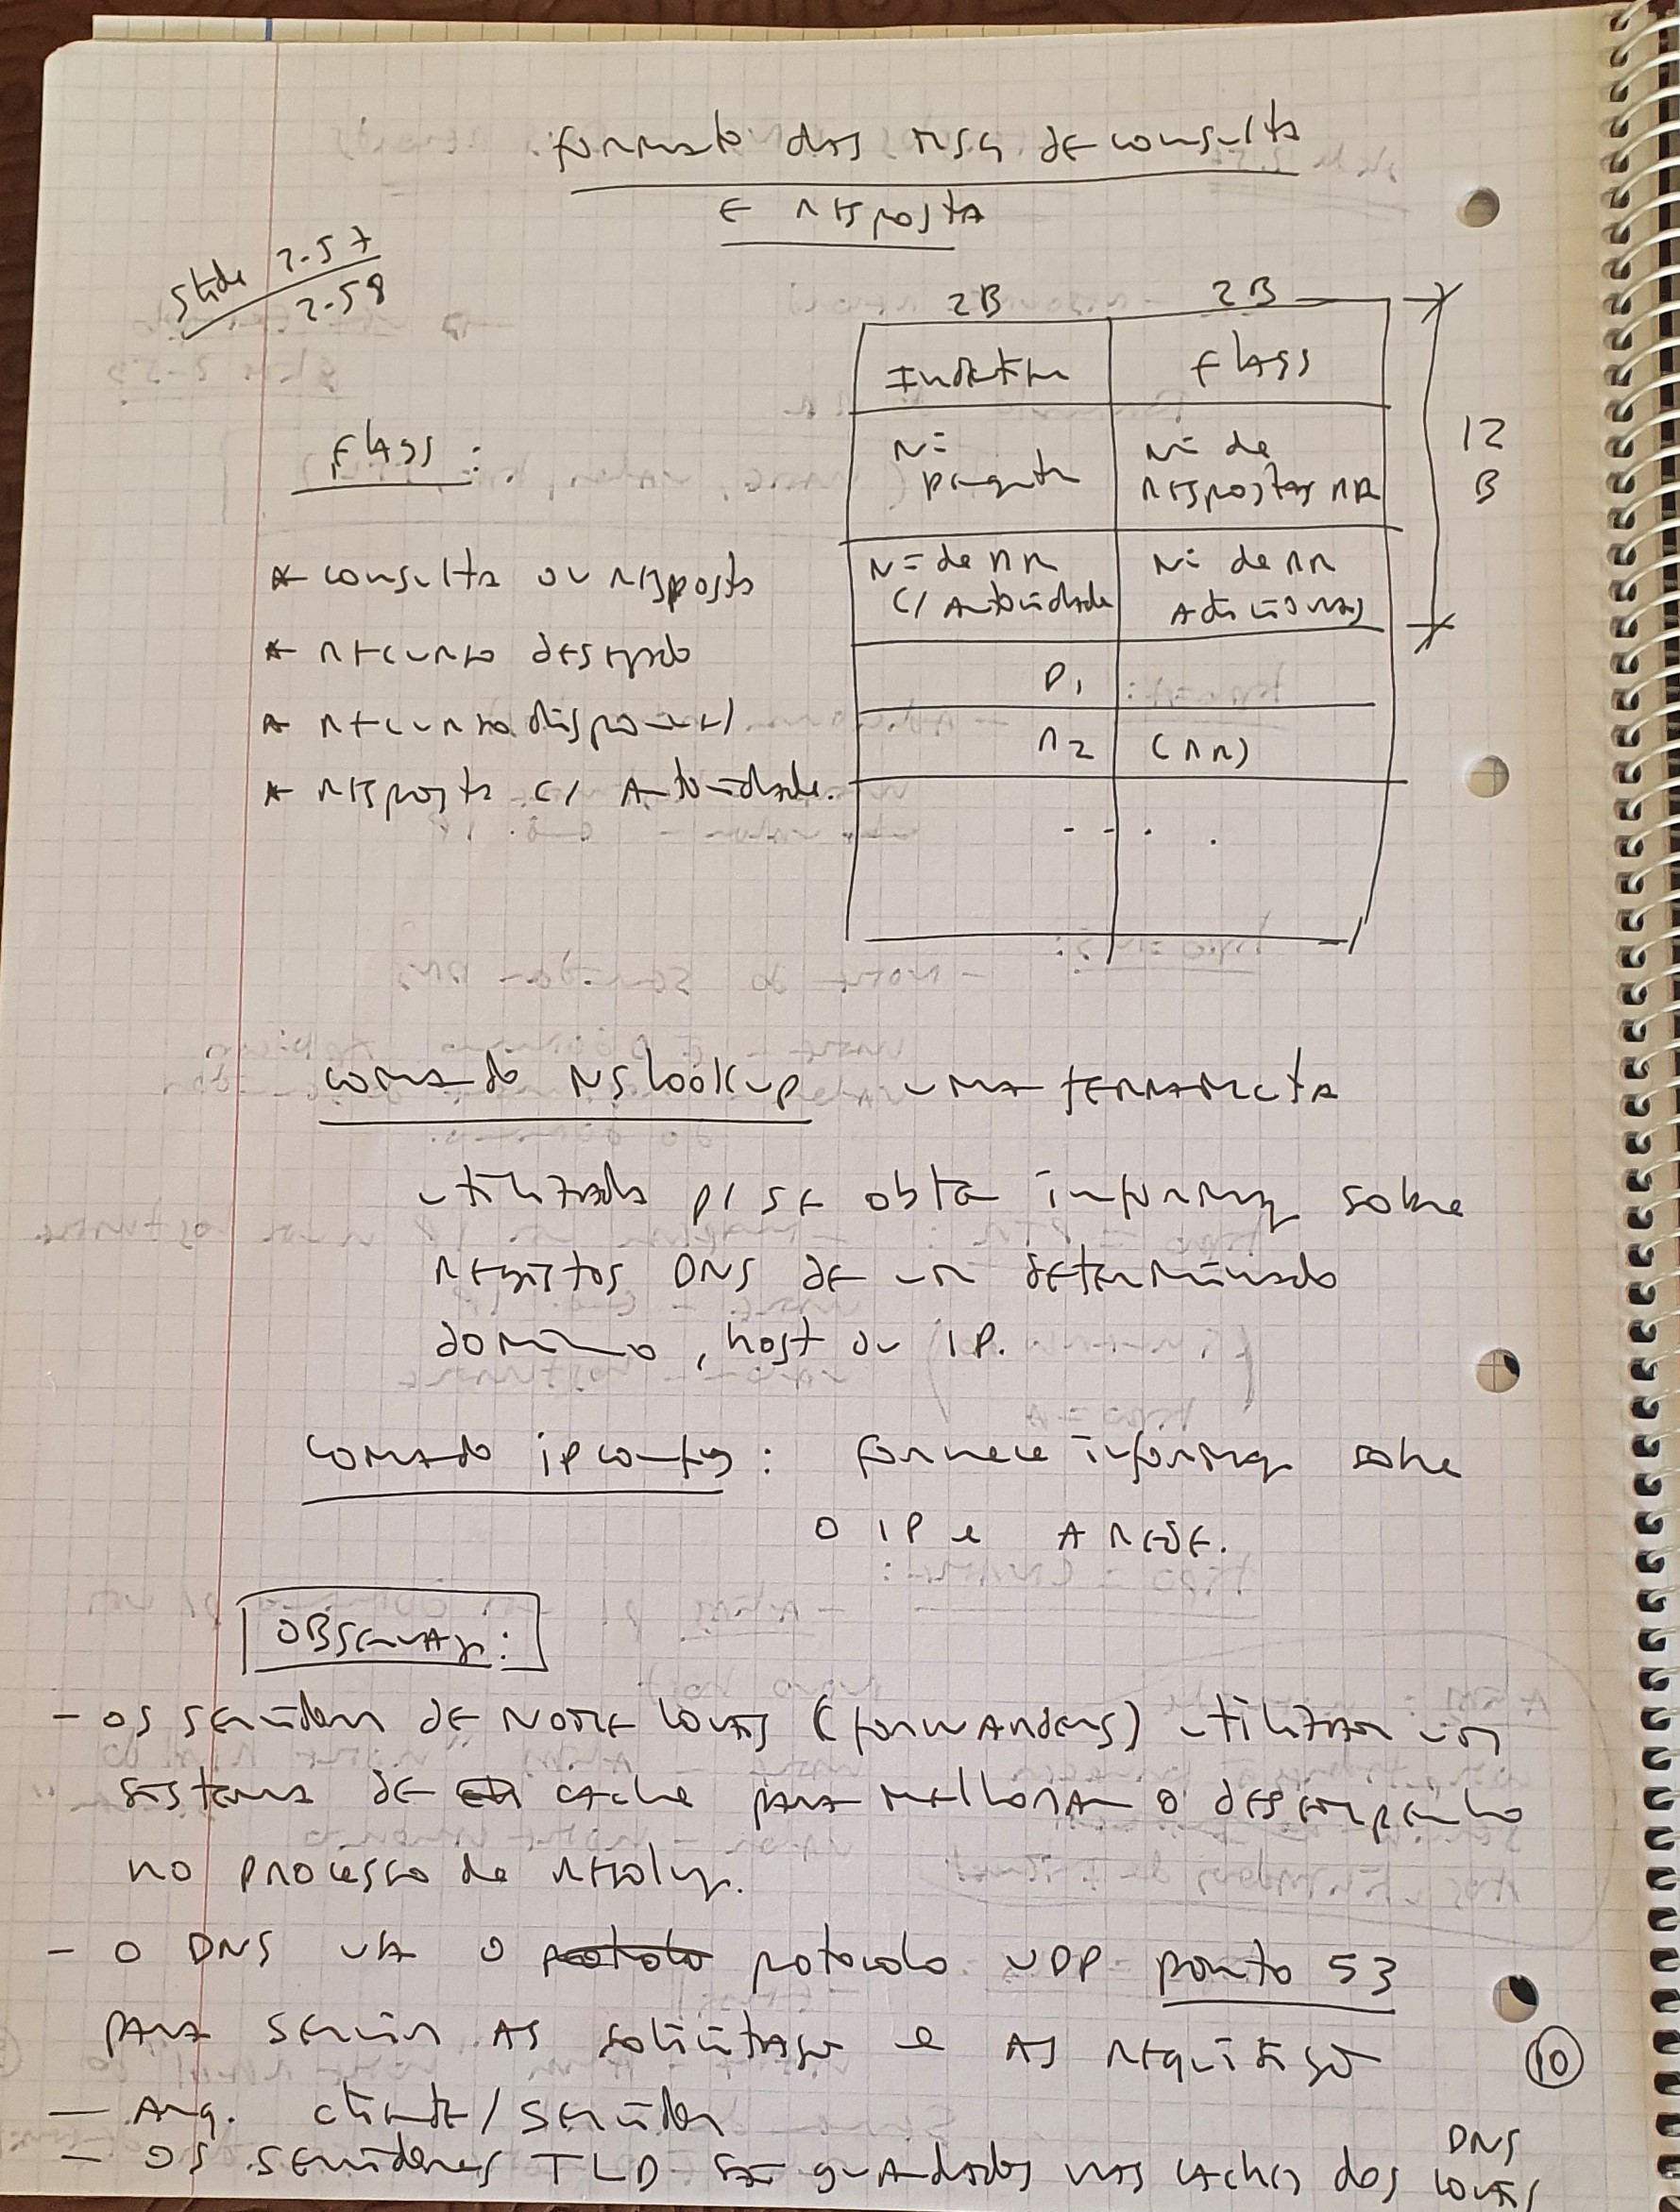 formato das MSG de consulta
e resposta
Slide 2-57
2-58
2B 2B
Identifi Flags
Nº pergunta Nº de respostas RR
Nº de RR c/ Autoridade Nº de RR Adicionais
12 B
P1
R2 (RR)
. . . .
Flags:
* consulta ou resposta
* recurso desejado
* recurso disponivel
* resposta c/ Autoridade.
comando NSlookup uma ferramenta
utilizada p/ se obter informaç sobre
registos DNS de um determinado
dominio, host ou IP.
comando ipconfig: fornece informaç sobre
o IP e a rede.
Observaç:
- os servidores de Nome locais (forwarders) utilizam um
sistema de cache para melhorar o desempenho
no processo de resoluç.
- o DNS usa o protocolo UDP porto 53
para servir as solicitaço e as requisiço
- Arq. cliente/servidor
- os servidores TLD são guardados nas caches dos DNS locais
10